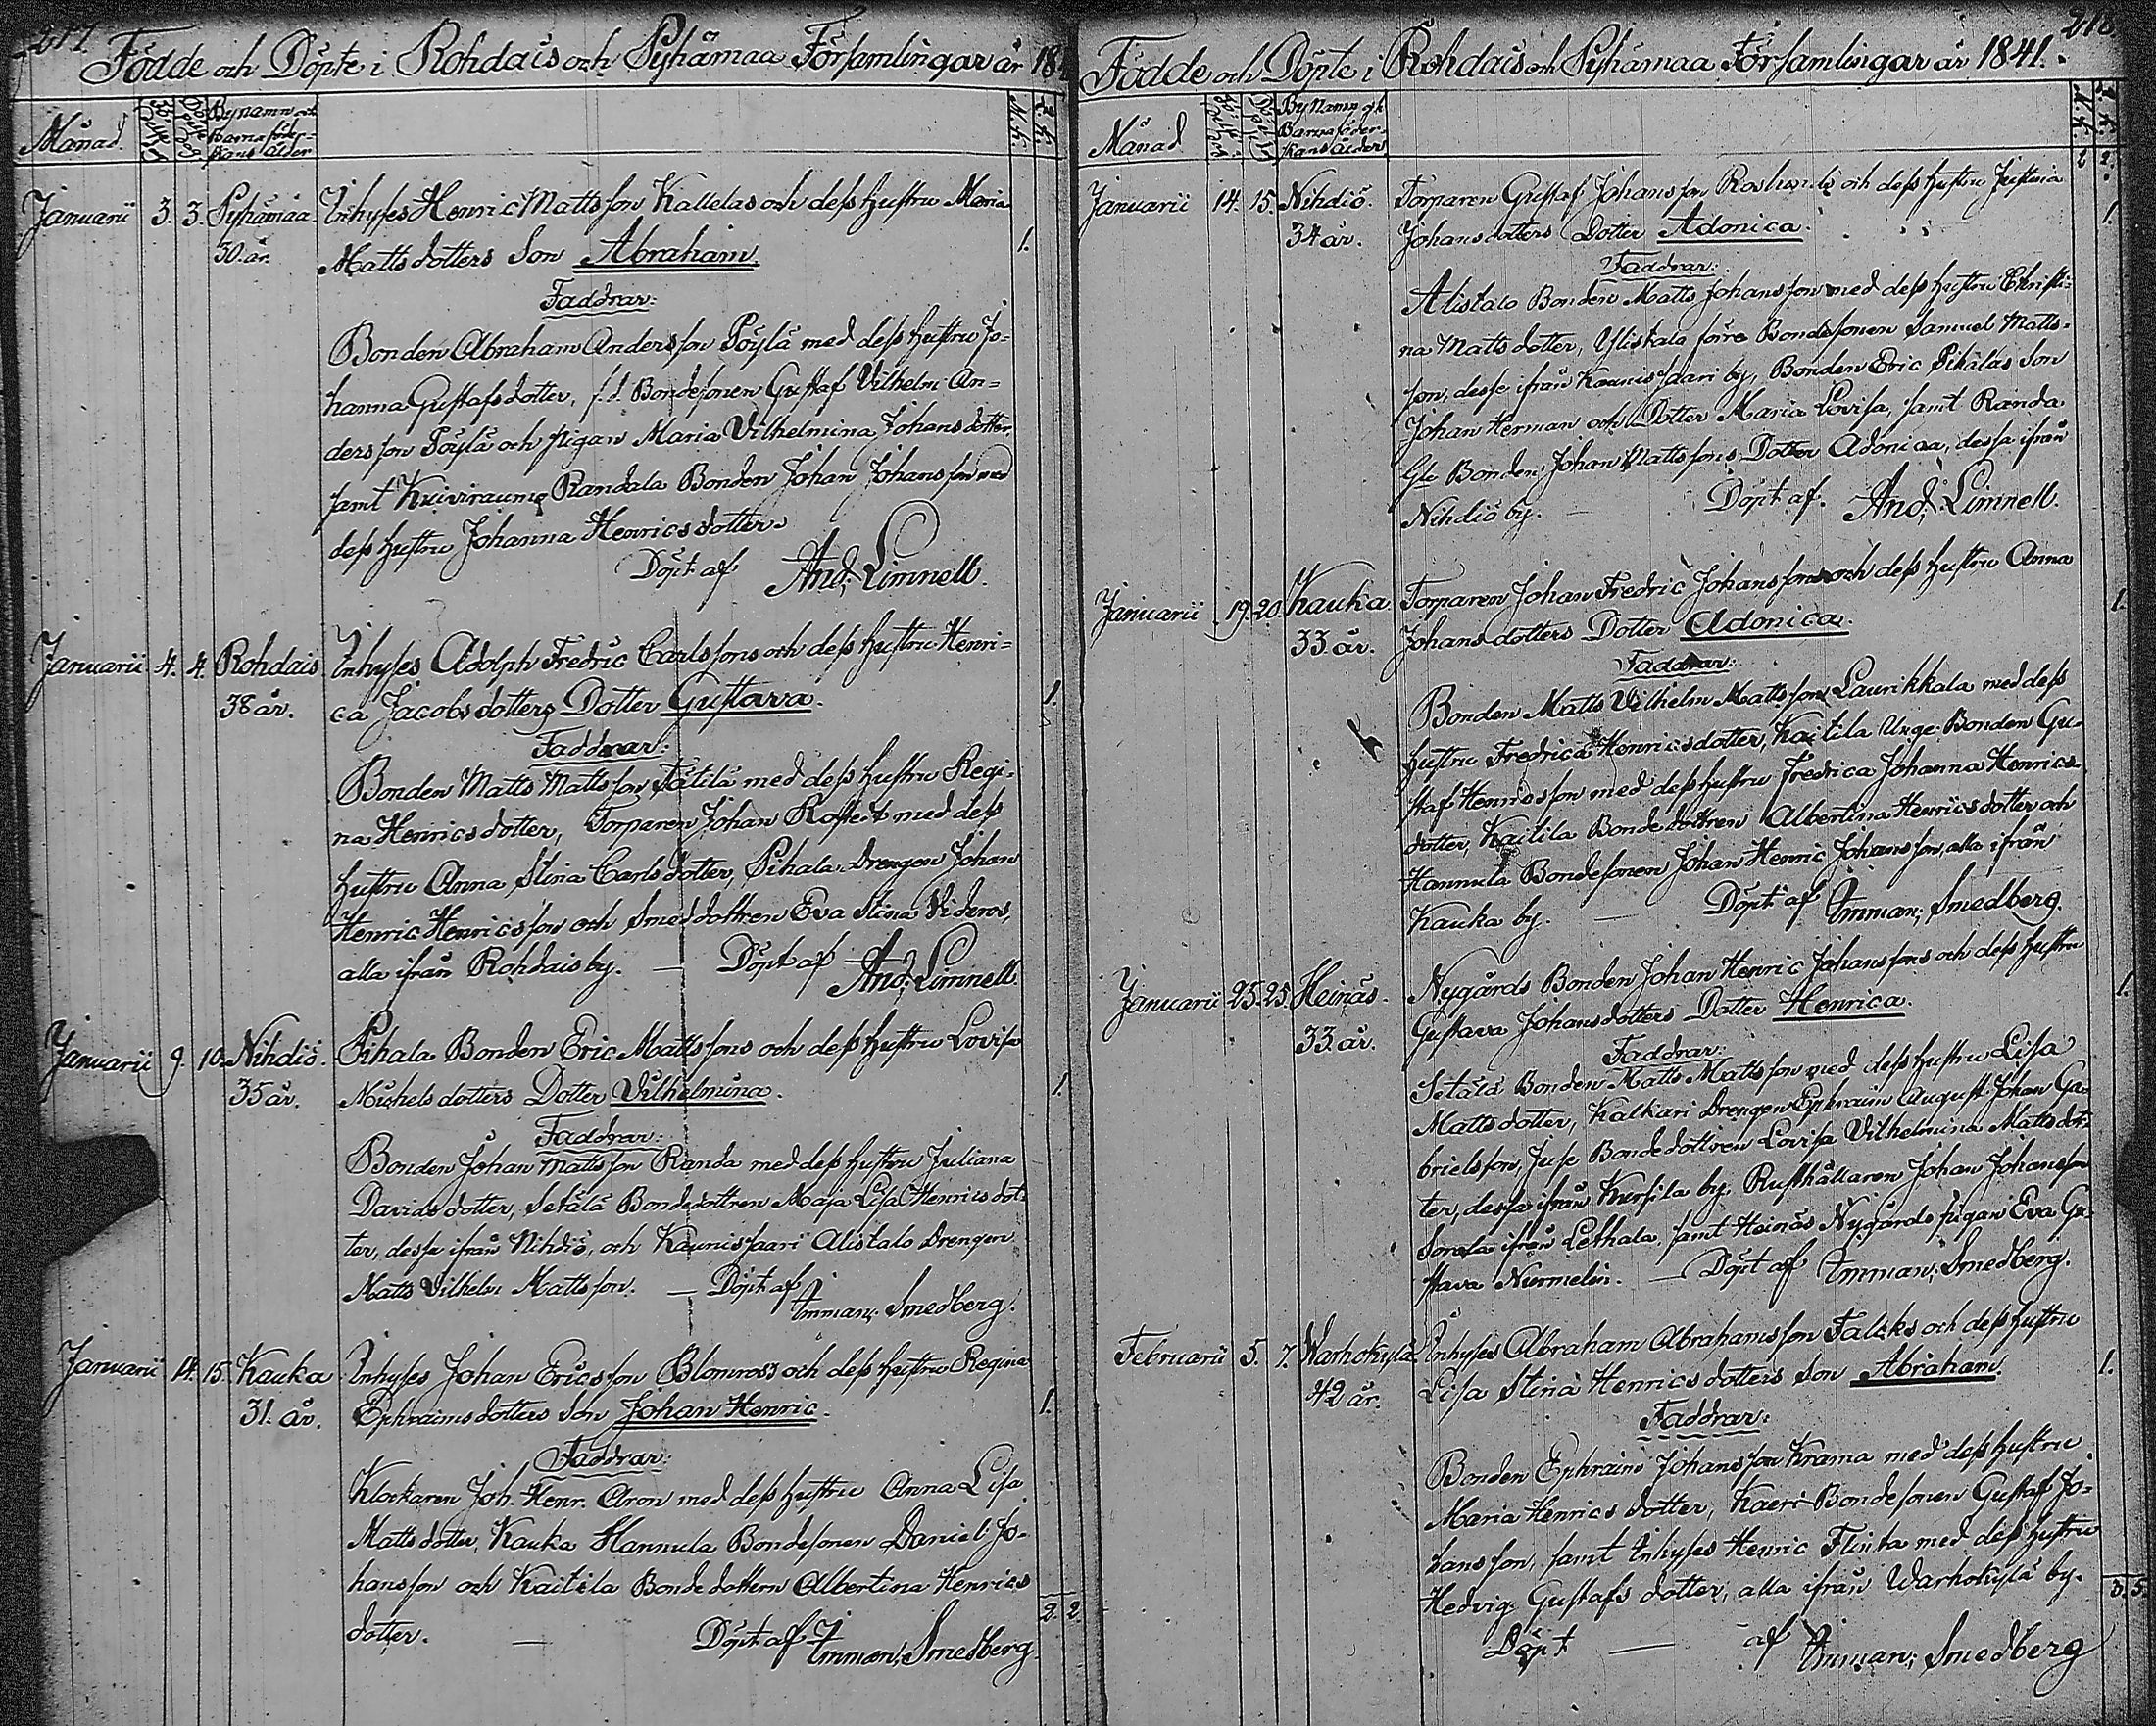 217.
Födde och Döpte i Rohdais och Pyhämaa Församlingar år 184
Månad
Bynamn och
Barnaföder-
skans ålder
Januarii 3. 3. Pyhämaa. Inhyses Henric Mattsson Kallelas och dess hustru Maria
30. år. Mattsdotters Son Abraham. 1.
Faddrar:
Bonden Abraham Andersson Pöylä med dess hustru Jo=
hanna Gustafsdotter, f.d. Bondesonen Gustaf Vilhelm An=
dersson Pöylä och pigan Maria Vilhelmina Johansdotter,
samt Kuivirauma Randala Bonden Johan Johansson med
dess hustru Johanna Henricsdotter.
Döpt af And: Limnell.
Januarii 4. 4. Rohdais Inhyses Adolph Fredric Carlssons och dess hustru Henri=
38 år. ca Jacobsdotters Dotter Gustava. 1.
Faddrar:
Bonden Matts Mattsson Tätilä med dess hustru Regi=
na Henricsdotter, Torparen Johan Rostedt med dess
hustru Anna Stina Carlsdotter, Pihala Drengen Johan
Henric Henricsson och Smeddottren Eva Stina Videros,
alla ifrån Rohdais by. — Döpt af And: Limnell.
Januarii 9. 10. Nihdiö. Pihala Bonden Eric Mattssons och dess hustru Lovisa
35 år. Michelsdotters Dotter Vilhelmina. 1.
Faddrar:
Bonden Johan Mattsson Randa med dess hustru Juliana
Davidsdotter, Setälä Bondedottren Maja Lisa Henricsdot=
ter, desse ifrån Nihdiö, och Kaunissaari Alistalo Drengen
Matts Vilhelm Mattsson. — Döpt af
Imman: Smedberg.
Januarii 14. 15. Kauka Inhyses Johan Ericsson Blomross och dess hustru Regina
31. år. Ephraimsdotters Son Johan Henric. 1.
Faddrar:
Klockaren Joh. Henr. Aron med dess hustru Anna Lisa
Mattsdotter, Kauka Hannula Bondesonen Daniel Jo=
hansson och Kaitila Bondedottern Albertina Henrics
dotter. — Döpt af Imman: Smedberg.
2. 2.
218
Födde och Döpte i Rohdais och Pyhämaa Församlingar år 1841.
Månad
By Namn och
Barnaföder-
skans ålder
2 2.
Januarii 14. 15. Nihdiö. Torparen Gustaf Johansson och dess hustru Justina
34 år. Johansdotters Dotter Adonica. 1.
Faddrar:
Alistalo Bonden Matts Johansson med dess hustru Christi=
na Mattsdotter, Ylistalo förre Bondesonen Samuel Matts=
son, desse ifrån Kaunissaari by, Bonden Eric Pihalas Son
Johan Herman och Dotter Maria Lovisa, samt Randa
Gle Bonden Johan Mattssons Dotter Adonica, dessa ifrån
Nihdiö by. — Döpt af And: Limnell.
Januarii 19. 20. Kauka Torparen Johan Fredric Johanssons och dess hustru Anna
33. år. Johansdotters Dotter Adonica. 1.
Faddrar:
Bonden Matts Vilhelm Mattsson Laurikkala med dess
hustru Fredrica Henricsdotter, Kaitila Unge Bonden Gu-
staf Henricsson med dess hustru Fredrica Johanna Henrics-
dotter, Kaitila Bondedottren Albertina Henricsdotter och
Hannula Bondesonen Johan Henric Johansson, alla ifrån
Kauka by. — Döpt af Imman: Smedberg.
Januarii 23. 25. Heinäs. Nygårds Bonden Johan Henric Johanssons och dess hustru
33. år. Gustava Johansdotters Dotter Henrica. 1.
Faddrar:
Setälä Bonden Matts Mattsson med dess hustru Lisa
Mattsdotter, Kalkari Drengen Ephraim August Johan Ga-
brielsson, Juse Bondedottren Lovisa Vilhelmina Mattsdot-
ter, dessa ifrån Kursila by. Rusthållaren Johan Johansson
Sorola ifrån Lethala samt Heinäs Nygårds pigan Eva Gu-
stava Nurmelin. — Döpt af Imman: Smedberg.
Februarii 5. 7. Warhokylä Inhyses Abraham Abrahamsson Falcks och dess hustru
42 år. Lisa Stina Henricsdotters Son Abraham. 1.
Faddrar:
Bonden Ephraim Johansson Krama med dess hustru
Maria Henricsdotter, Kaeri Bondesonen Gustaf Jo=
hansson, samt Inhyses Henric Flinta med dess hustru
Hedvig Gustafsdotter, alla ifrån Warhokylä by.
Döpt — af Imman: Smedberg
3. 5.